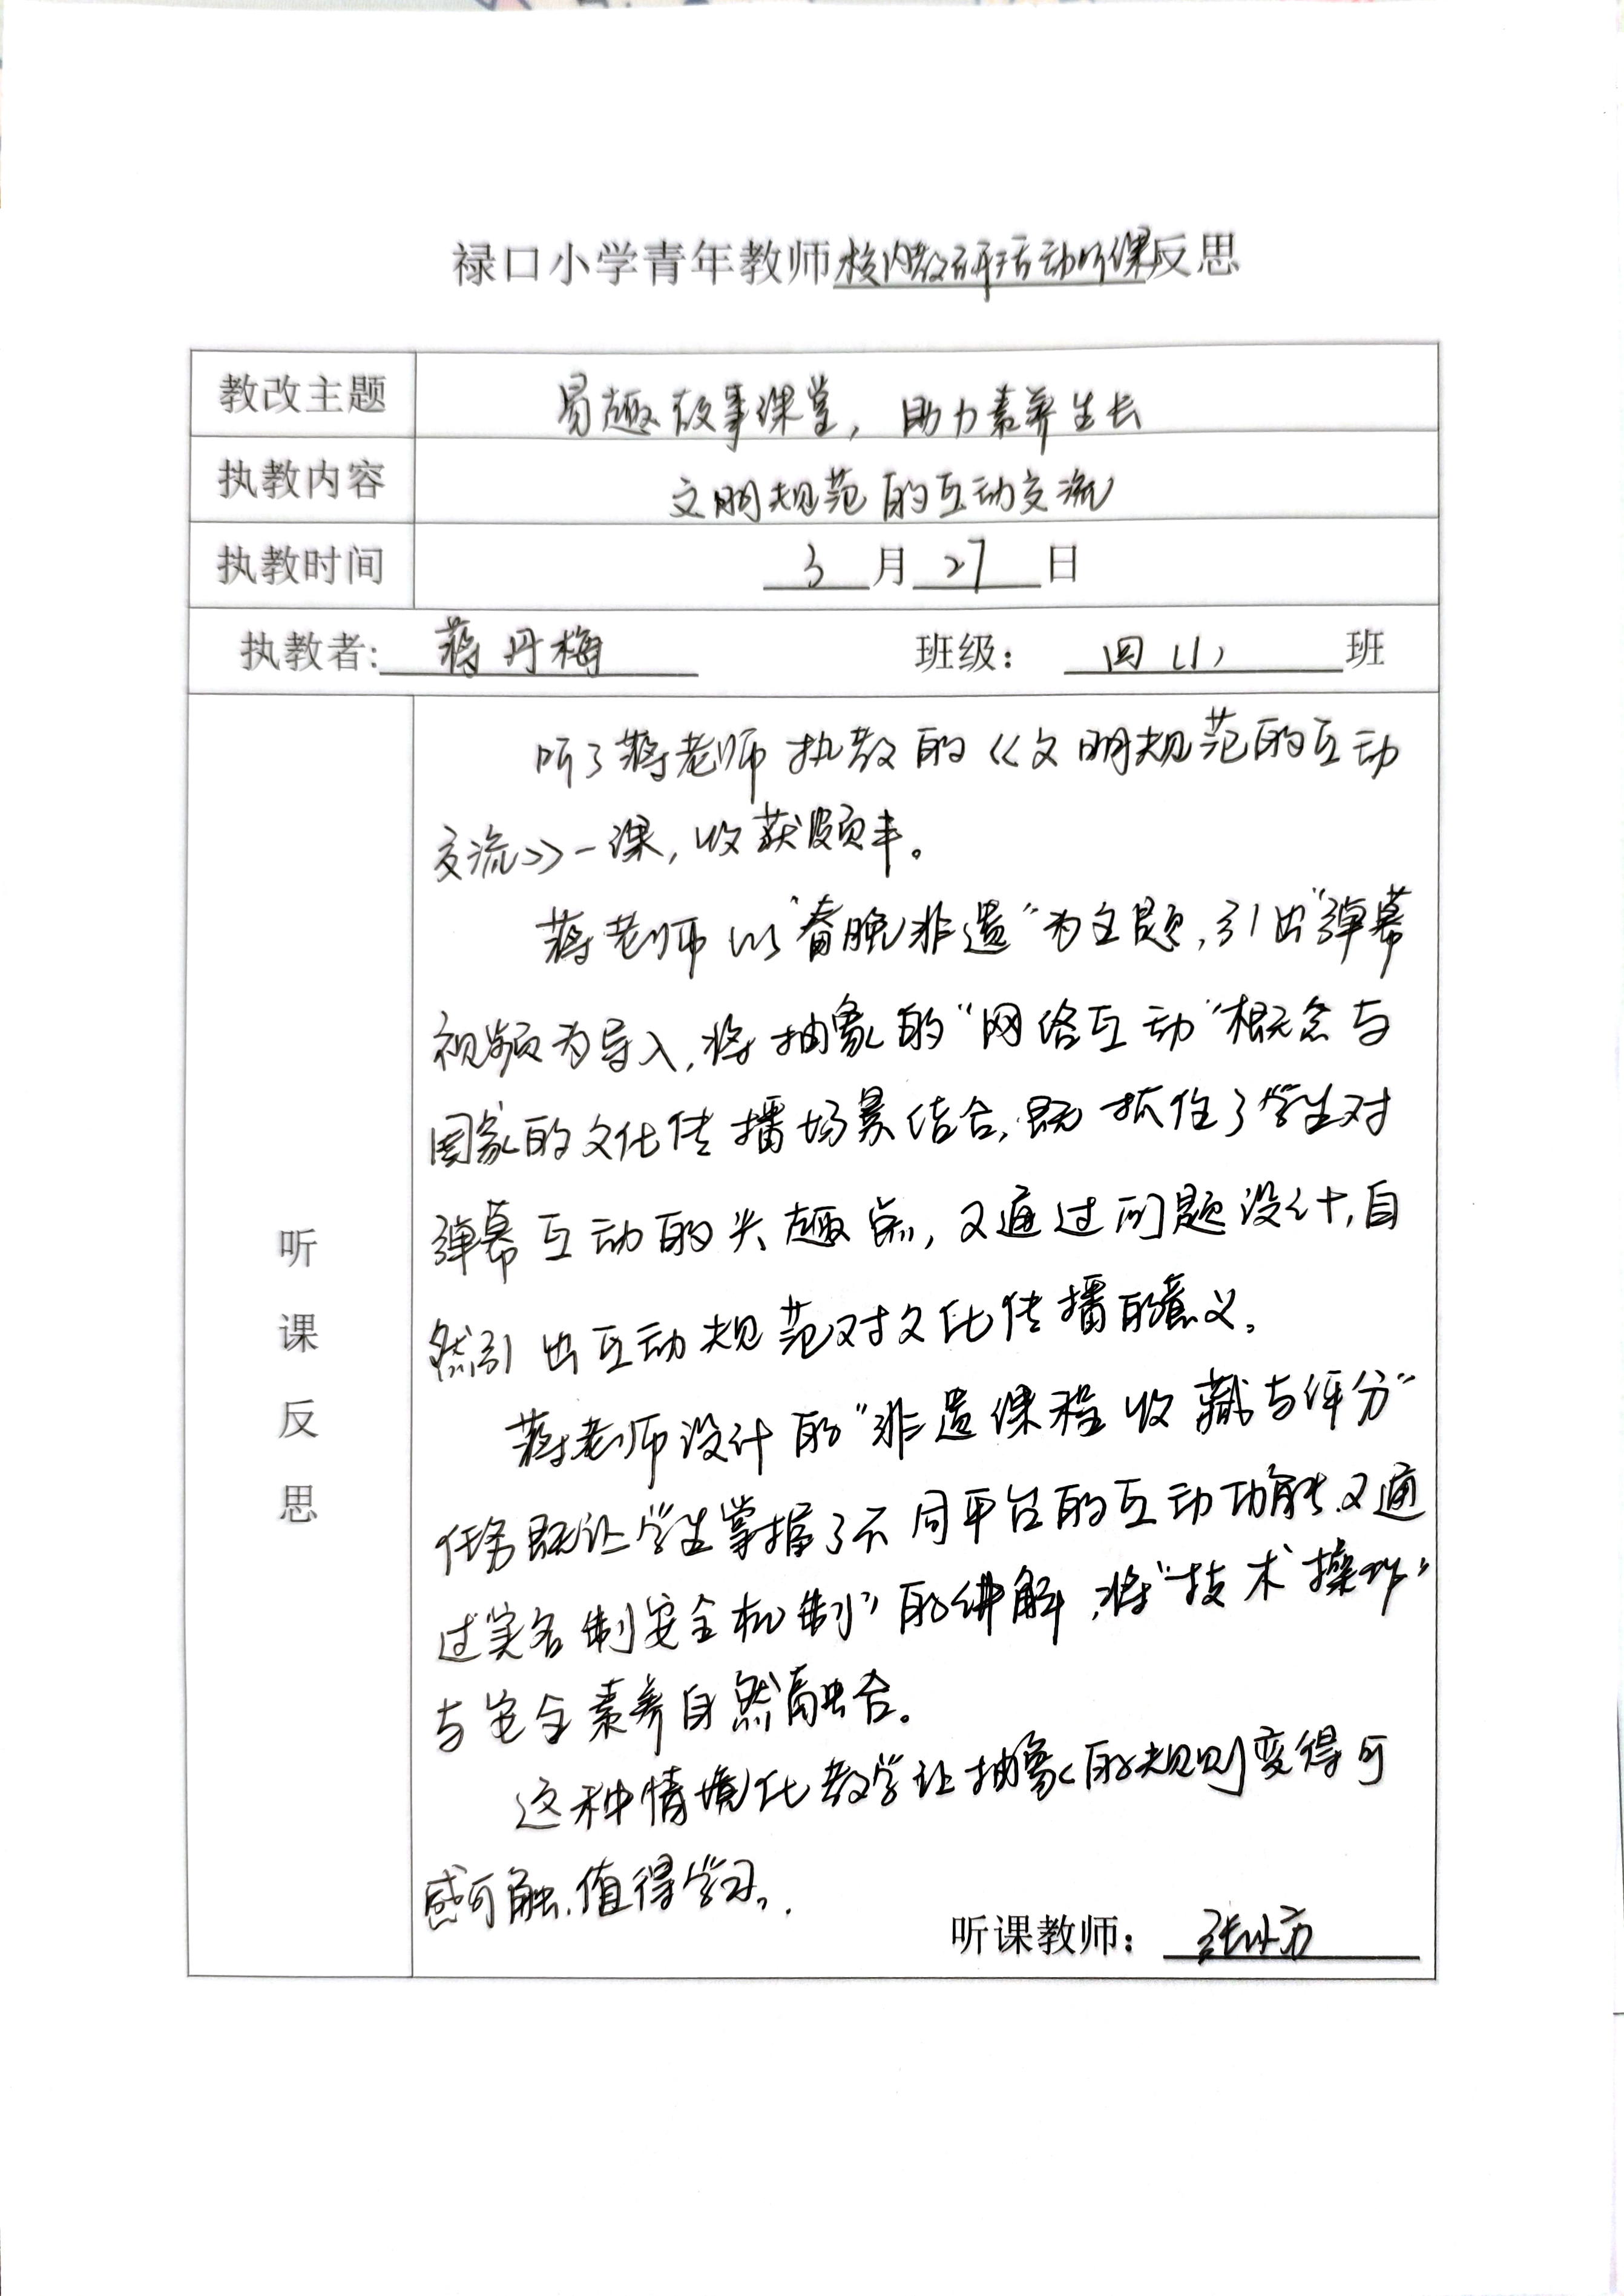 禄口小学青年教师校内教研活动听课反思
教改主题 易趣故事课堂，助力素养生长
执教内容 文明规范的互动交流
执教时间 3月27日
执教者：蒋丹梅 班级：四（1）班
听课反思
听了蒋老师执教的《文明规范的互动
交流》一课，收获颇丰。
蒋老师以“春晚非遗”为主题，引出“弹幕
视频为导入，将抽象的“网络互动”概念与
国家的文化传播场景结合，既抓住了学生对
弹幕互动的兴趣点，又通过问题设计，自
然引出互动规范对文化传播的意义。
蒋老师设计的“非遗课程收藏与评分”
任务既让学生掌握了不同平台的互动功能，又通
过实名制安全机制”的讲解，将“技术操作”
与安全素养自然融合。
这种情境化教学让抽象的规则变得可
感可触，值得学习。
听课教师：张